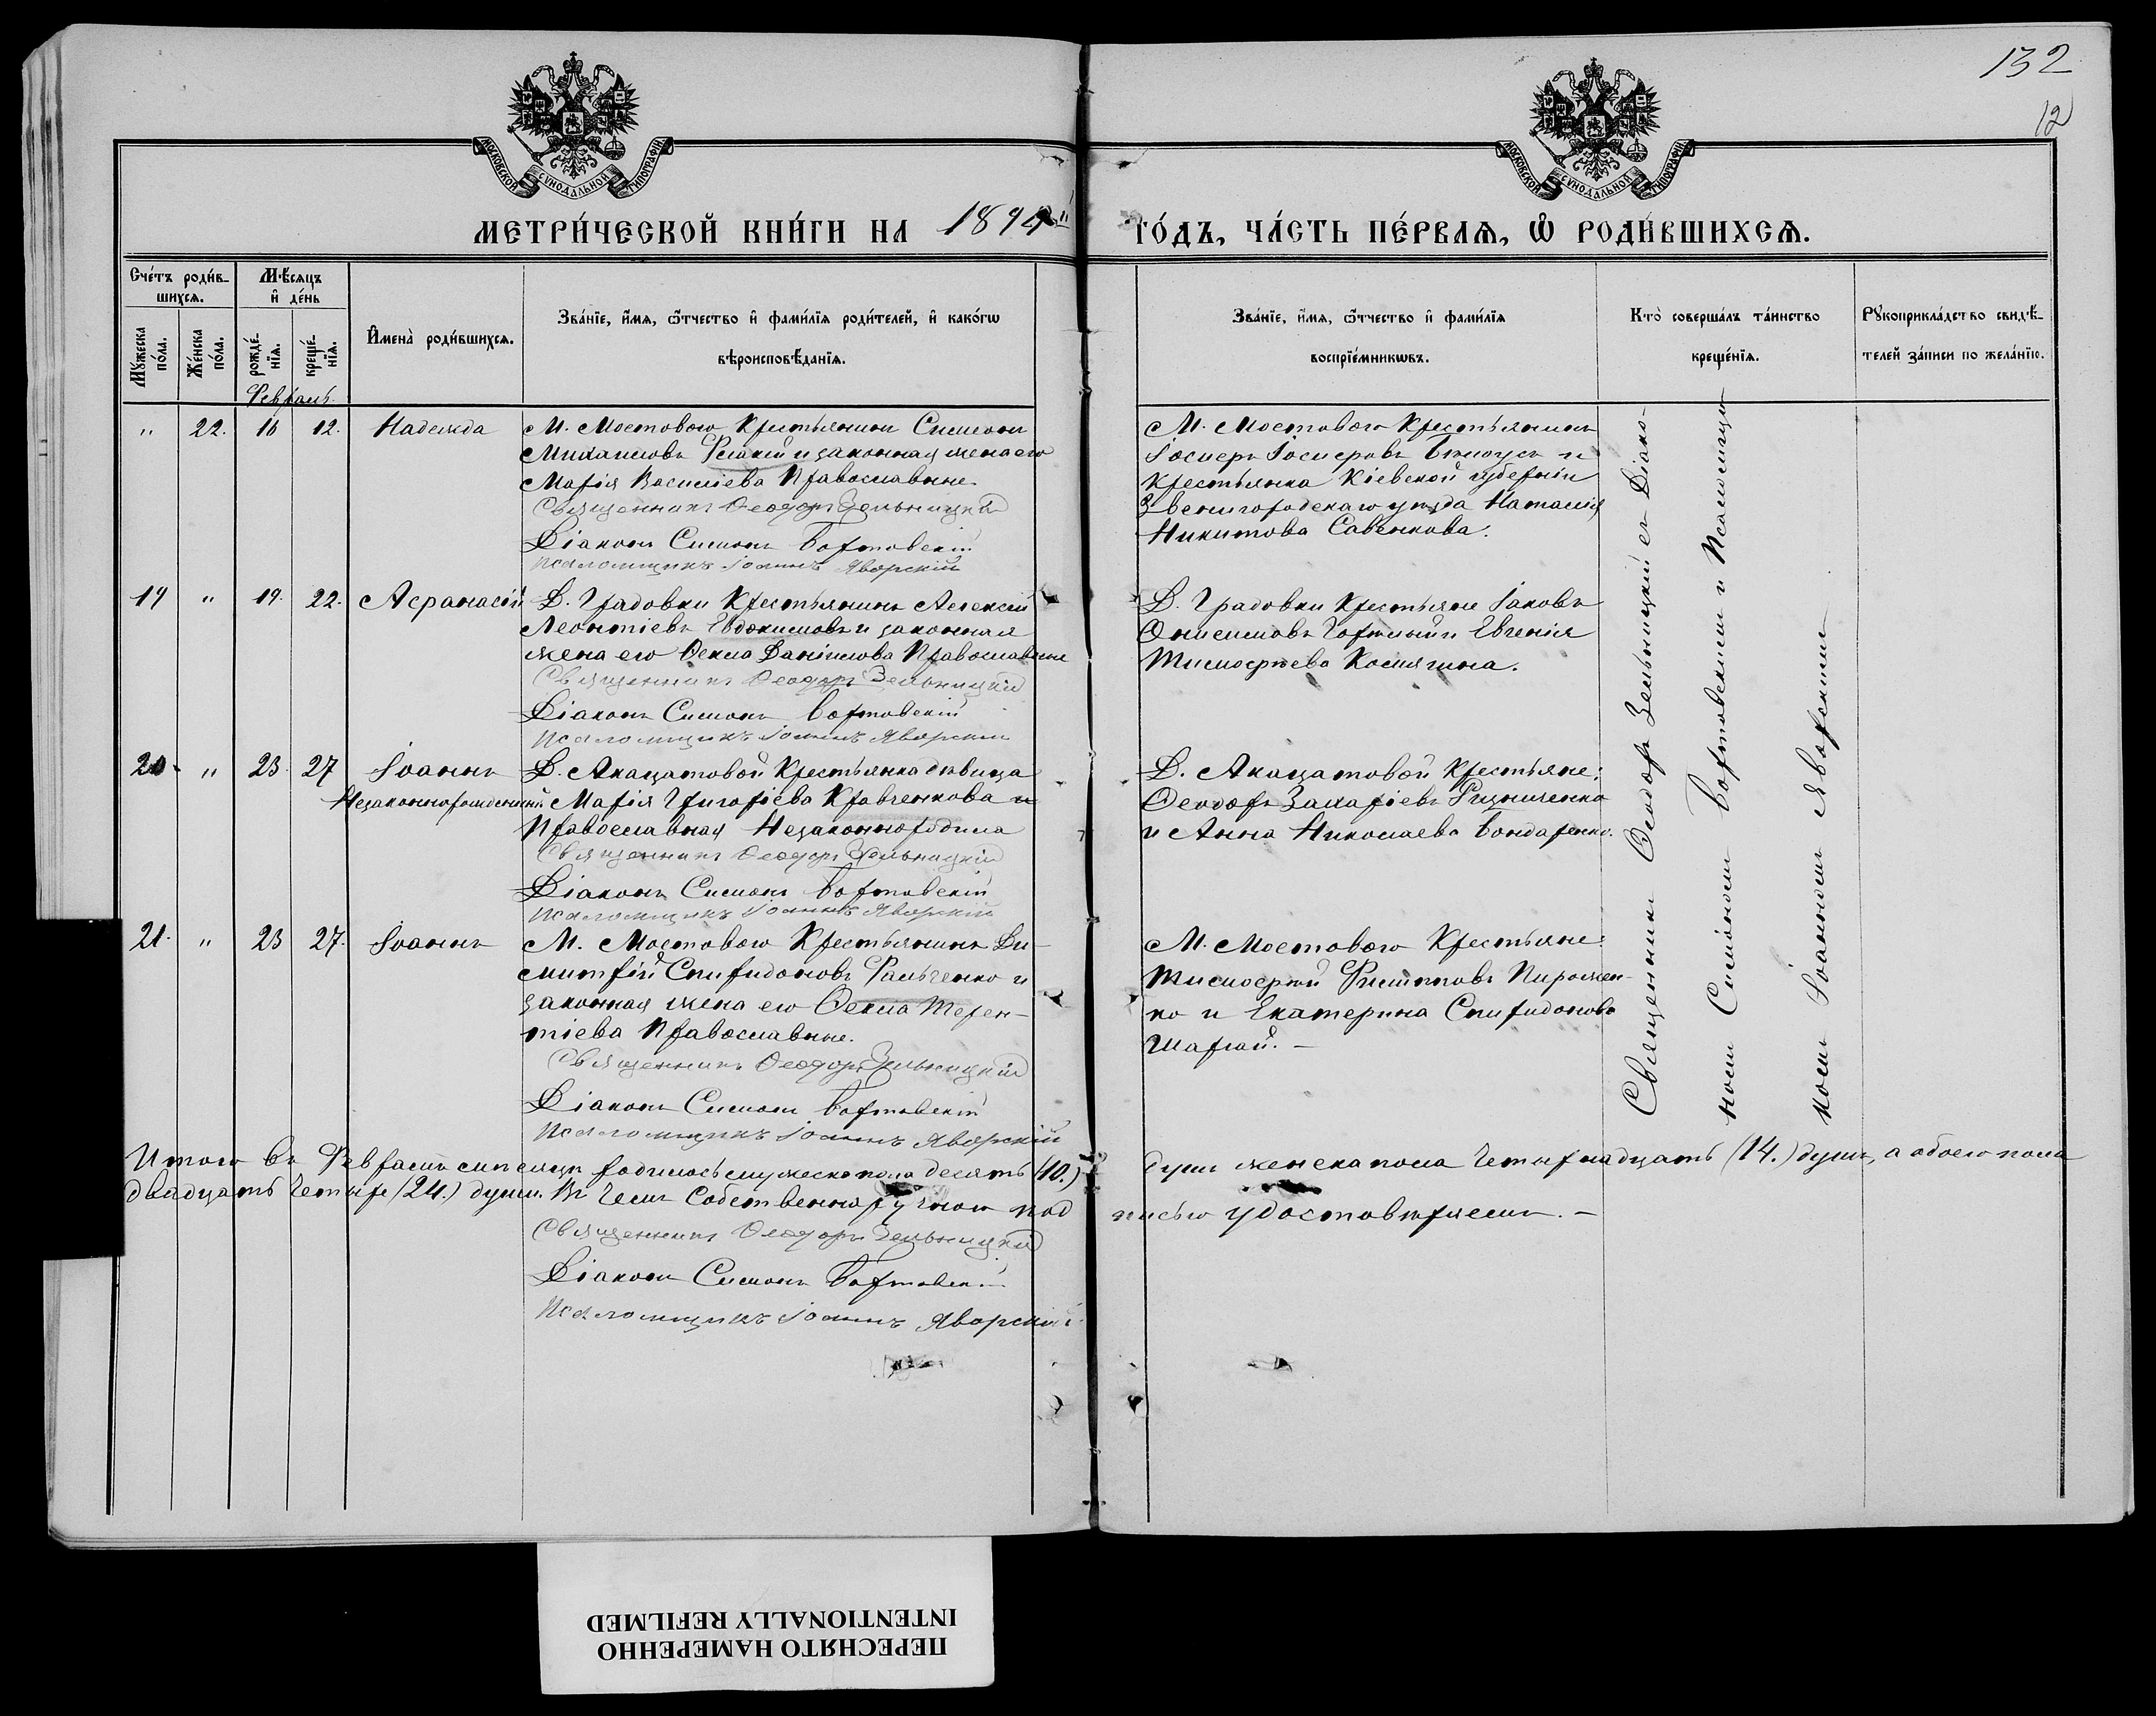 132
12
МОСКОВСКОЙ СѴНОДАЛЬНОЙ ТИПОГРАФІИ
МОСКОВСКОЙ СѴНОДАЛЬНОЙ ТИПОГРАФІИ
МЕТРИ́ЧЕСКОЙ КНИ́ГИ НА 1894й ГО́ДЪ, ЧА́СТЬ ПЕ́РВАѦ, Ѡ҆ РОДИ́ВШИХСѦ.
Сче́тъ роди́в-
шихсѧ.
Мꙋжеска по́ла.
Же́нска по́ла.
Мѣ́сяцъ
и҆ де́нь
рожде́-
нїѧ.
креще́-
нїѧ.
И҆мена̀ роди́вшихсѧ.
Зва́нїе, и҆́мѧ, ѻ҆́тчество и҆ фами́лїѧ роди́телей, и҆ како́гѡ
вѣроисповѣ́данїѧ.
Зва́нїе, и҆́мѧ, ѻ҆́тчество и҆ фами́лїѧ
воспрїе́мникѡвъ.
Кто̀ соверша́лъ та́инство
креще́нїѧ.
Рꙋкоприкла́дство свидѣ́-
телей за́писи по жела́нїю.
Февраль.
" 22. 12. Надежда
М. Мостоваго Крестьянинъ Симеонъ
Михаиловъ и законная жена его
Марія Василіева Православные.
Священникъ Ѳеодоръ Зельницкій
Діаконъ Симонъ Бортовскій
Псаломщикъ Іоаннъ Яворскій
М. Мостоваго Крестьянинъ
Іосифъ Іосифовъ Билоусъ и
Крестьянка Кіевской губерніи
Звенигородскаго уѣзда Наталія
Никитова Савенкова.
19 " 19. 22. Афанасій
Д. Градовки Крестьянинъ Алексій
Леонтіевъ Евдокимовъ и законная
жена его Ѳекла Даніилова Православные
Священникъ Ѳеодоръ Зельницкій
Діаконъ Симонъ Бортовскій
Псаломщикъ Іоаннъ Яворскій
Д. Градовки Крестьяне Іаковъ
Онисимовъ и Евгенія
Тимофѣева
20. " 23. 27 Іоаннъ
Незаконнорожденный
Д. Акацатовой Крестьянка дѣвица
Марія Григоріева Кравченкова
Православная Незаконно родила
Священникъ Ѳеодоръ Зельницкій
Діаконъ Симонъ Бортовскій
Псаломщикъ Іоаннъ Яворскій
Д. Акацатовой Крестьяне:
Ѳеодоръ Захаріевъ Ризниченко
и Анна Николаева Бондаренко.
21. " 23 27. Іоаннъ
М. Мостоваго Крестьянинъ Ди-
митрій Спиридоновъ Фальченко и
законная жена его Ѳекла Терен-
тіева Православные.
Священникъ Ѳеодоръ Зельницкій
Діаконъ Симонъ Бортовскій
Псаломщикъ Іоаннъ Яворскій
М. Мостоваго Крестьяне:
Тимофей Филипповъ Пирожен-
ко и Екатерина Спиридонова
Шарай. –
Священникъ Ѳеодоръ Зельницкій съ Діако-
номъ Симономъ Бортовскимъ и Псаломщи-
комъ Іоанномъ Яворскимъ
Итого въ Февралѣ мѣсяцѣ родилось мужеска пола десять (10.) душъ женска пола Четырнадцать (14.) душъ, а обоего пола
двадцать четыре (24.) души. Въ чемъ собственноручною подписью удостовѣряемъ. –
Священникъ Ѳеодоръ Зельницкій
Діаконъ Симонъ Бортовскій
Псаломщикъ Іоаннъ Яворскій
ПЕРЕСНЯТО НАМЕРЕННО
INTENTIONALLY REFILMED